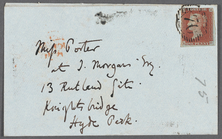 Miss Porter
at J. Morgans Esq.
13 Rutland Gate
Knightsbridge
Hyde Park.